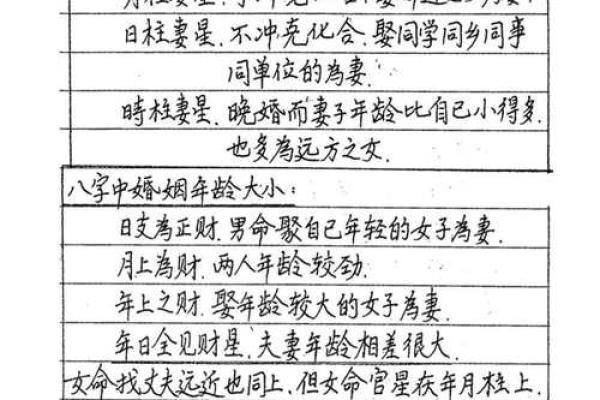 日柱妻星.不冲克化合.娶同学同乡同事
同单位的為妻.
時柱妻星.晚婚而妻子年龄比自己小得多.
也多為远方之女.
八字中婚姻年龄大小:
日支為正财.男命聚自己年轻的女子為妻.
月上為财.两人年龄较劲.
年上之财.娶年龄较大的女子為妻.
年日全见财星.夫妻年龄相差很大.
女命找丈夫远近也同上.但女命官星在年月柱上.